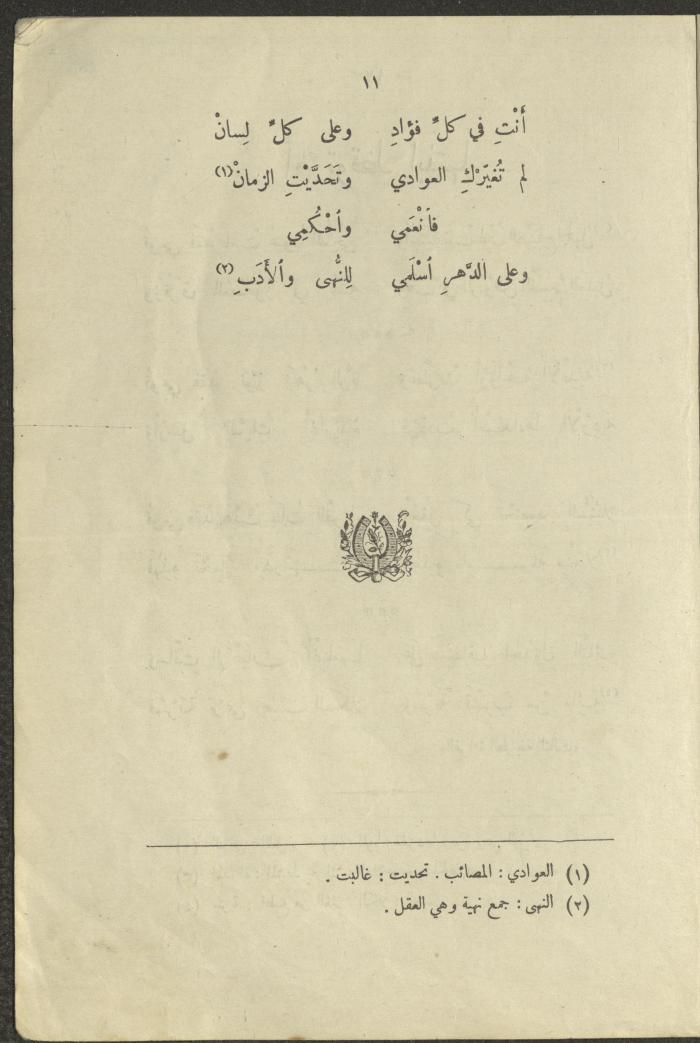 ١١
أَنْتِ في كلِّ فؤادِ وعلى كلِّ لِسانْ
لم تُغيّرْكِ العوادي وتَحَدَّيْتِ الزمانْ(١)
فاَنْعَمي وٱحْكُمِي
وعلى الدَّهرِ ٱسْلَمي لِلنُّهى وٱلأَدَبِ(٢)
(١) العوادي : المصائب . تحديت : غالبت .
(٢) النهى : جمع نهية وهي العقل .